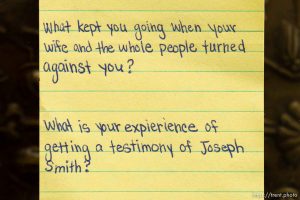 What kept you going when your
wife and the whole people turned
against you?
What is your expierience of
getting a testimony of Joseph
Smith?
http://trent.photo